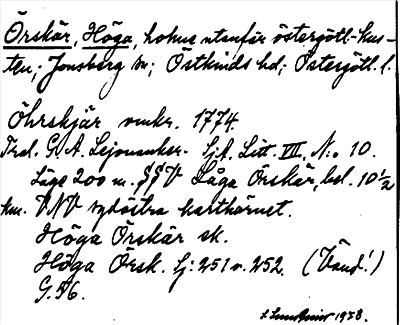 Örskär, Höga, holme utanför östergötl. kus-
ten; Jonsberg sn; Östkinds hd; Östergötl. l.
Öhrskjär omkr. 1774.
Tral. G. A. Lejonanker. Sjk. Litt. VII, No 10.
Läge 200 m. SSV Låga Örskär, bel. 10 1/2
km. VNV sydöstra karthörnet.
Höga Örskär sk.
Höga Örsk. Hj: 251 o. 252. (Vänd!)
G. 56.
1938.